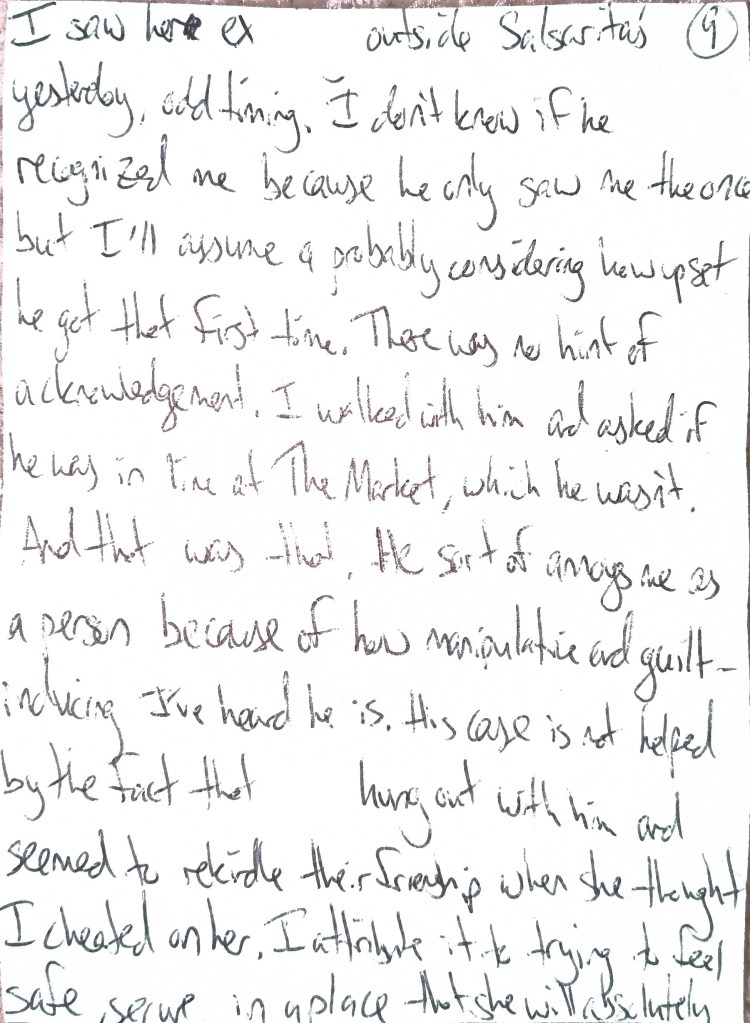 I saw her ex outside Salsarita's 9
yesterday, odd timing. I don't know if he
recognized me because he only saw me the once
but I'll assume a probably considering how upset
he got that first time. There was no hint of
acknowledgement. I walked with him and asked if
he was in line at The Market, which he wasn't.
And that was that. He sort of annoys me as
a person because of how manipulative and guilt-
inducing I've heard he is. His case is not helped
by the fact that hung out with him and
seemed to rekindle their friendship when she thought
I cheated on her. I attribute it to trying to feel
safe, secure in a place that she will absolutely